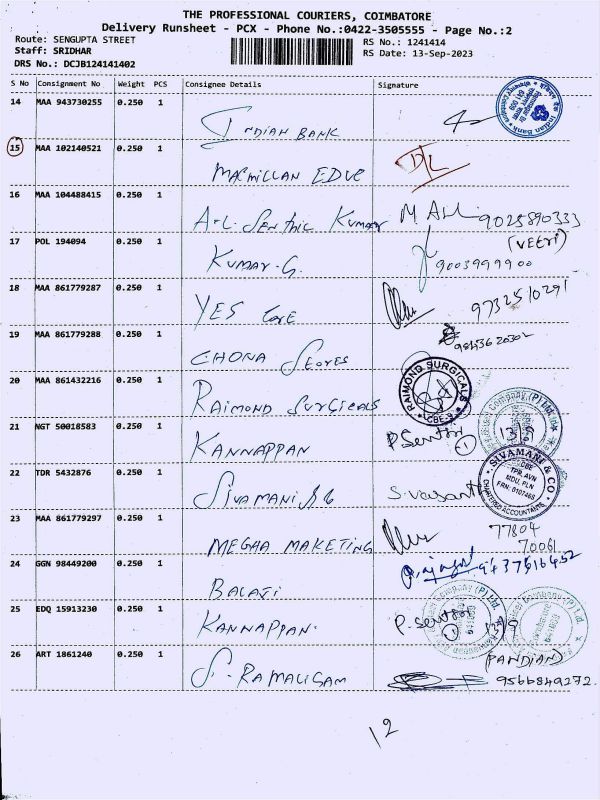 THE PROFESSIONAL COURIERS, COIMBATORE
Delivery Runsheet - PCX - Phone No.:0422-3505555 - Page No.:2
Route: SENGUPTA STREET
RS No.: 1241414
Staff: SRIDHAR
RS Date: 13-Sep-2023
DRS No.: DCJB124141402
S No Consignment No Weight PCS Consignee Details Signature
14 MAA 943730255 0.250 1
INDIAN BANK
15 MAA 102140521 0.250 1
D/L
MACMILLAN EDUC
16 MAA 104488415 0.250 1
A.L. SENTHIL KUMAR 9025890333
17 POL 194094 0.250 1
(VEETRI)
KUMAR.G. 9003999900
18 MAA 861779287 0.250 1
YES CORE 9732510291
19 MAA 861779288 0.250 1
CHONA STORES
20 MAA 861432216 0.250 1
RAIMOND SURGICALS
RAIMOND SURGICALS
CBE-9
21 NGT 50018583 0.250 1
KANNAPPAN P. Senthil
22 TDR 5432876 0.250 1
SIVAMANI & CO
CHARTERED ACCOUNTANTS
SIVAMANI & CO S. Vasanth
23 MAA 861779297 0.250 1
77804
MEGAA MAKETING 70061
24 GGN 98449200 0.250 1
BALAJI
25 EDQ 15913230 0.250 1
KANNAPPAN. P. Senthil 13/9
26 ART 1861240 0.250 1
(PANDIAN)
S. RAMALIGAM 9566849272.
12